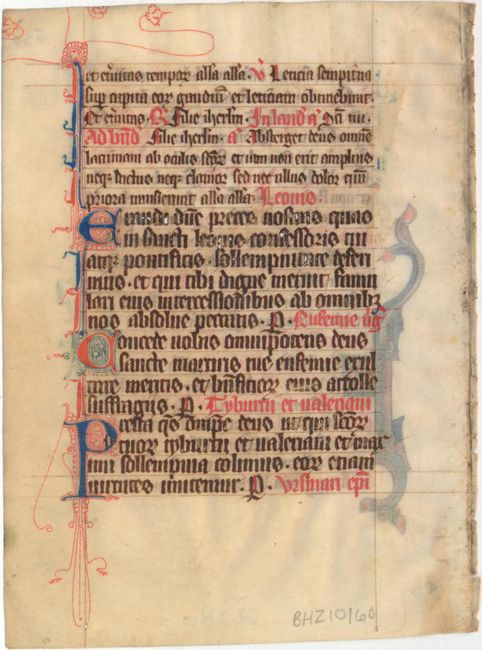 et eternitas tempor alla alla. V Leticia sempitna
sup capita eor gaudium et leticiam obtinebunt.
Filie iherlm. In laud a
Filie iherlm. a Absterget deus omnem
lacrimam ab oculis scor et iam non erit amplius
neq luctus neq clamor sed nec ullus dolor qm
priora transierunt alla alla. Leonis.
Exaudi dne preces nostras quas
in sancti leonis confessoris tui
atq pontificis sollempnitate deferi
mus. et qui tibi digne meruit famu
lari eius intercessionibus ab omnibz
nos absolue peccatis. P. Eufemie vg
Concede nobis omnipotens deus
sancte martiris tue eufemie exul
tare meritis. et bnficior eius attolle
suffragiis. P. Tyburtii et ualeriani
Presta qs omps deus ut qui scor
tuor tyburtii et ualeriani et max
imi sollempnia colimus. eor etiam
uirtutes imitemur. P. Ursmari epi
BHZ10160